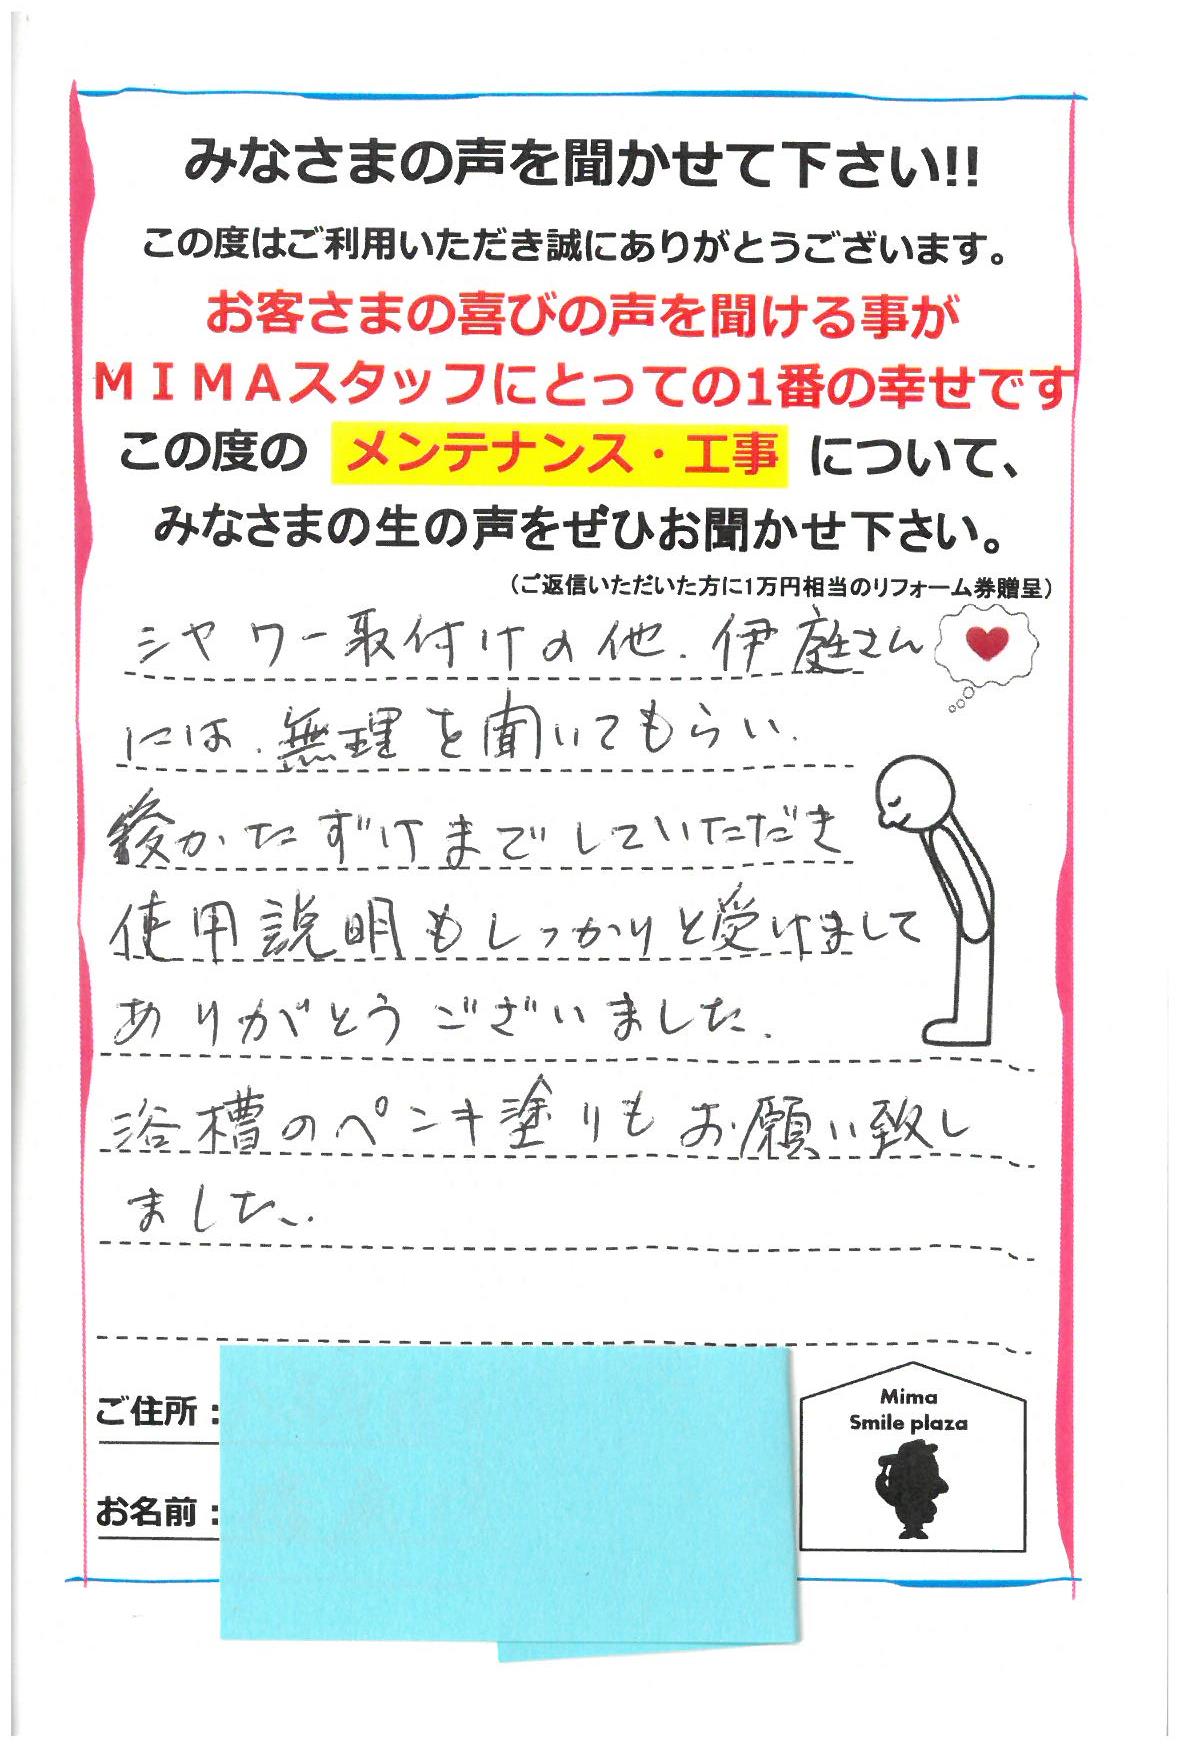 みなさまの声を聞かせて下さい!!
この度はご利用いただき誠にありがとうございます。
お客さまの喜びの声を聞ける事が
ＭＩＭＡスタッフにとっての1番の幸せです
この度の メンテナンス・工事 について、
みなさまの生の声をぜひお聞かせ下さい。
（ご返信いただいた方に1万円相当のリフォーム券贈呈）
シャワー取付けの他、伊庭さん
には、無理を聞いてもらい、
後かたずけまでしていただき
使用説明もしっかりと受けまして
ありがとうございました。
浴槽のペンキ塗りもお願い致し
ました。
ご住所：
お名前：
Mima
Smile plaza